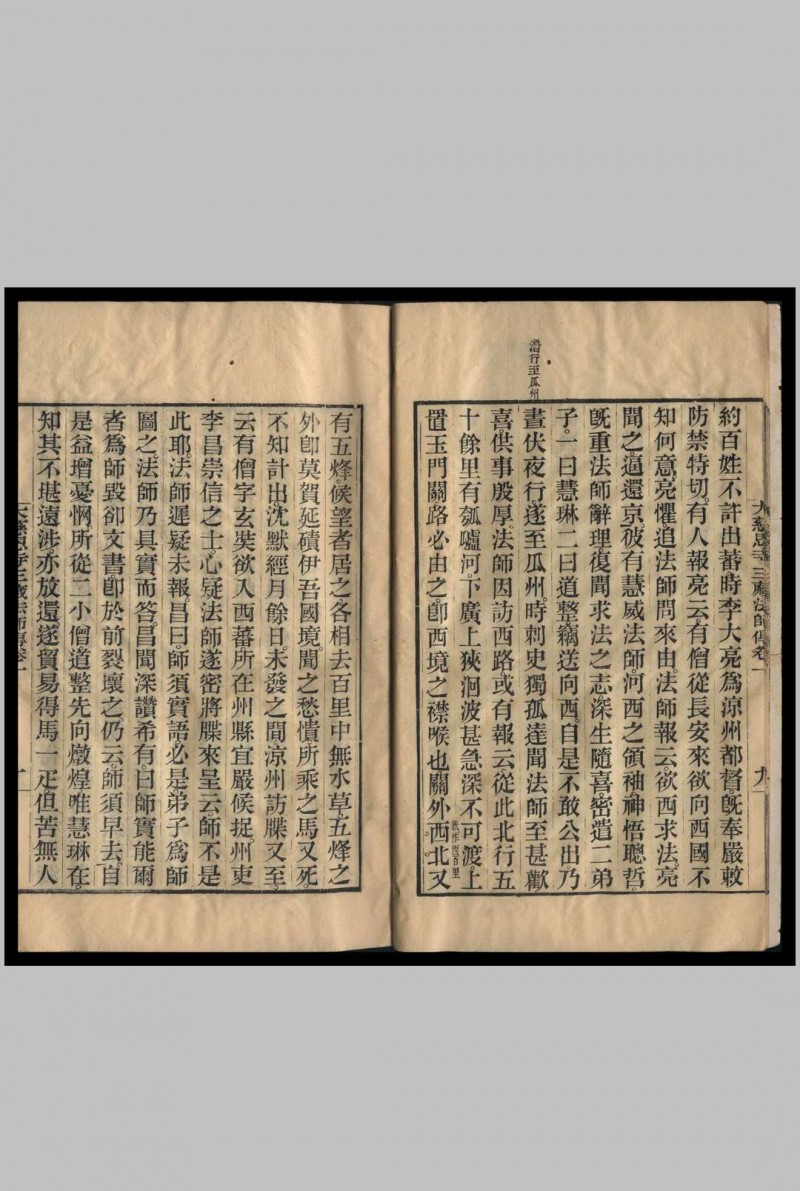 大慈恩寺三藏法師傳卷一
九
約百姓不許出蕃時李大亮爲涼州都督。旣奉嚴敕
防禁特切。有人報亮云有僧從長安來欲向西國不
知何意。亮懼追法師問來由。法師報云。欲西求法。亮
聞之逼還京。彼有慧威法師。河西之領袖。神悟聰哲。
旣重法師辭理復聞求法之志。深生隨喜。密遣二弟
子。一曰慧琳二曰道整竊送向西。自是不敢公出乃
沿行至瓜州
晝伏夜行。遂至瓜州。時刺史獨孤達聞法師至甚歡
喜供事殷厚。法師因訪西路。或有報云從此北行五
十餘里有瓠𤬛河。下廣上狹洄波甚急。深不可渡。上
置玉門關路必由之。卽西境之襟喉也關外西北又
有五烽。候望者居之。各相去百里中無水草。五烽之
外卽莫賀延磧伊吾國境。聞之愁憒。所乘之馬又死。
不知計出。沈默經月餘日。未發之間涼州訪牒又至。
云有僧字玄奘欲入西蕃所在州縣宜嚴候捉。州吏
李昌崇信之士。心疑法師遂密將牒來呈云。師不是
此耶。法師遲疑未報。昌曰。師須實語必是弟子爲師
圖之。法師乃具實而答。昌聞深讚希有曰師實能爾
者爲師毀卻文書。卽於前裂壞之。仍云。師須早去。自
是益增憂惘。所從二小僧道整先向燉煌唯慧琳在。
知其不堪遠涉。亦放還。遂貿易得馬一疋但苦無人
大慈恩寺三藏法師傳卷一